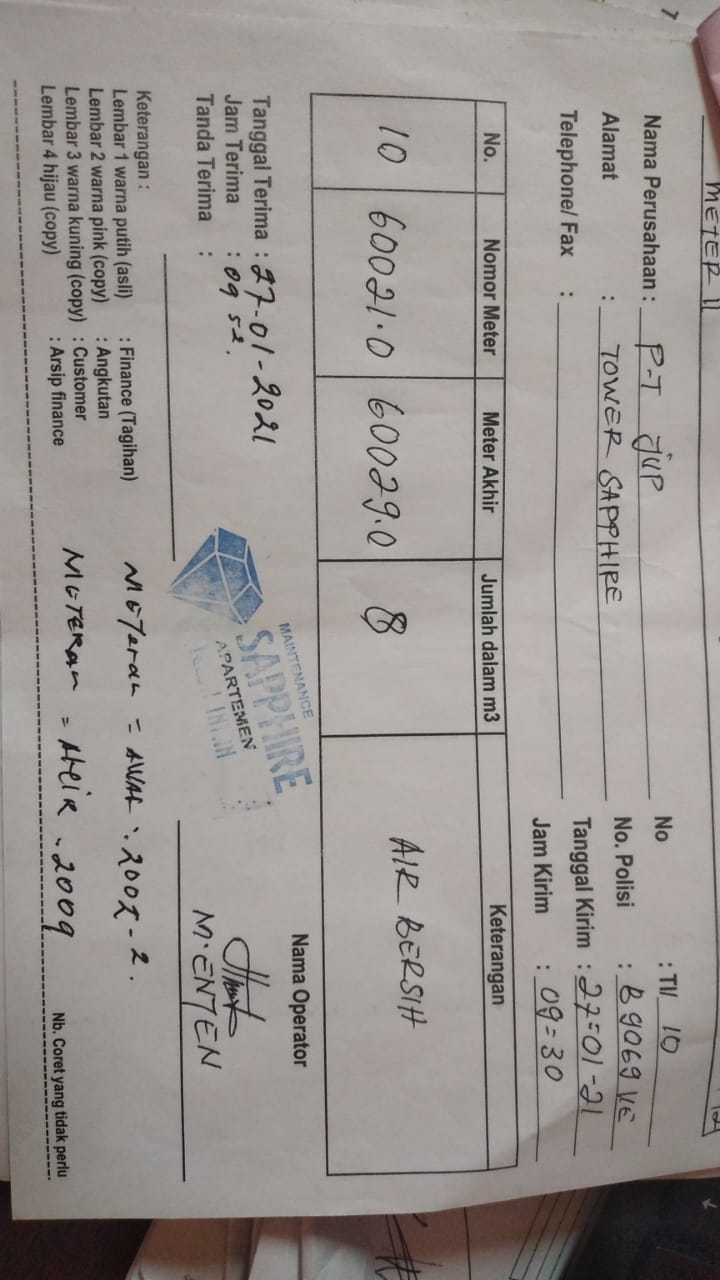 METER II
Nama Perusahaan : P-T JUP
Alamat : TOWER SAPPHIRE
Telephone/ Fax :
No : TI/ 10
No. Polisi : B 9069 VE
Tanggal Kirim : 27-01-21
Jam Kirim : 09=30
No. Nomor Meter Meter Akhir Jumlah dalam m3 Keterangan
10 60021.0 60029.0 8 AIR BERSIH
Tanggal Terima : 27-01-2021
Jam Terima : 09 52.
Tanda Terima :
MAINTENANCE
SAPPHIRE
APARTEMEN
Nama Operator
M.ENTEN
Keterangan :
Lembar 1 warna putih (asli) : Finance (Tagihan)
Lembar 2 warna pink (copy) : Angkutan
Lembar 3 warna kuning (copy) : Customer
Lembar 4 hijau (copy) : Arsip finance
METeran = AWAL :
METERan = AHIR . 2009
Nb. Coret yang tidak perlu